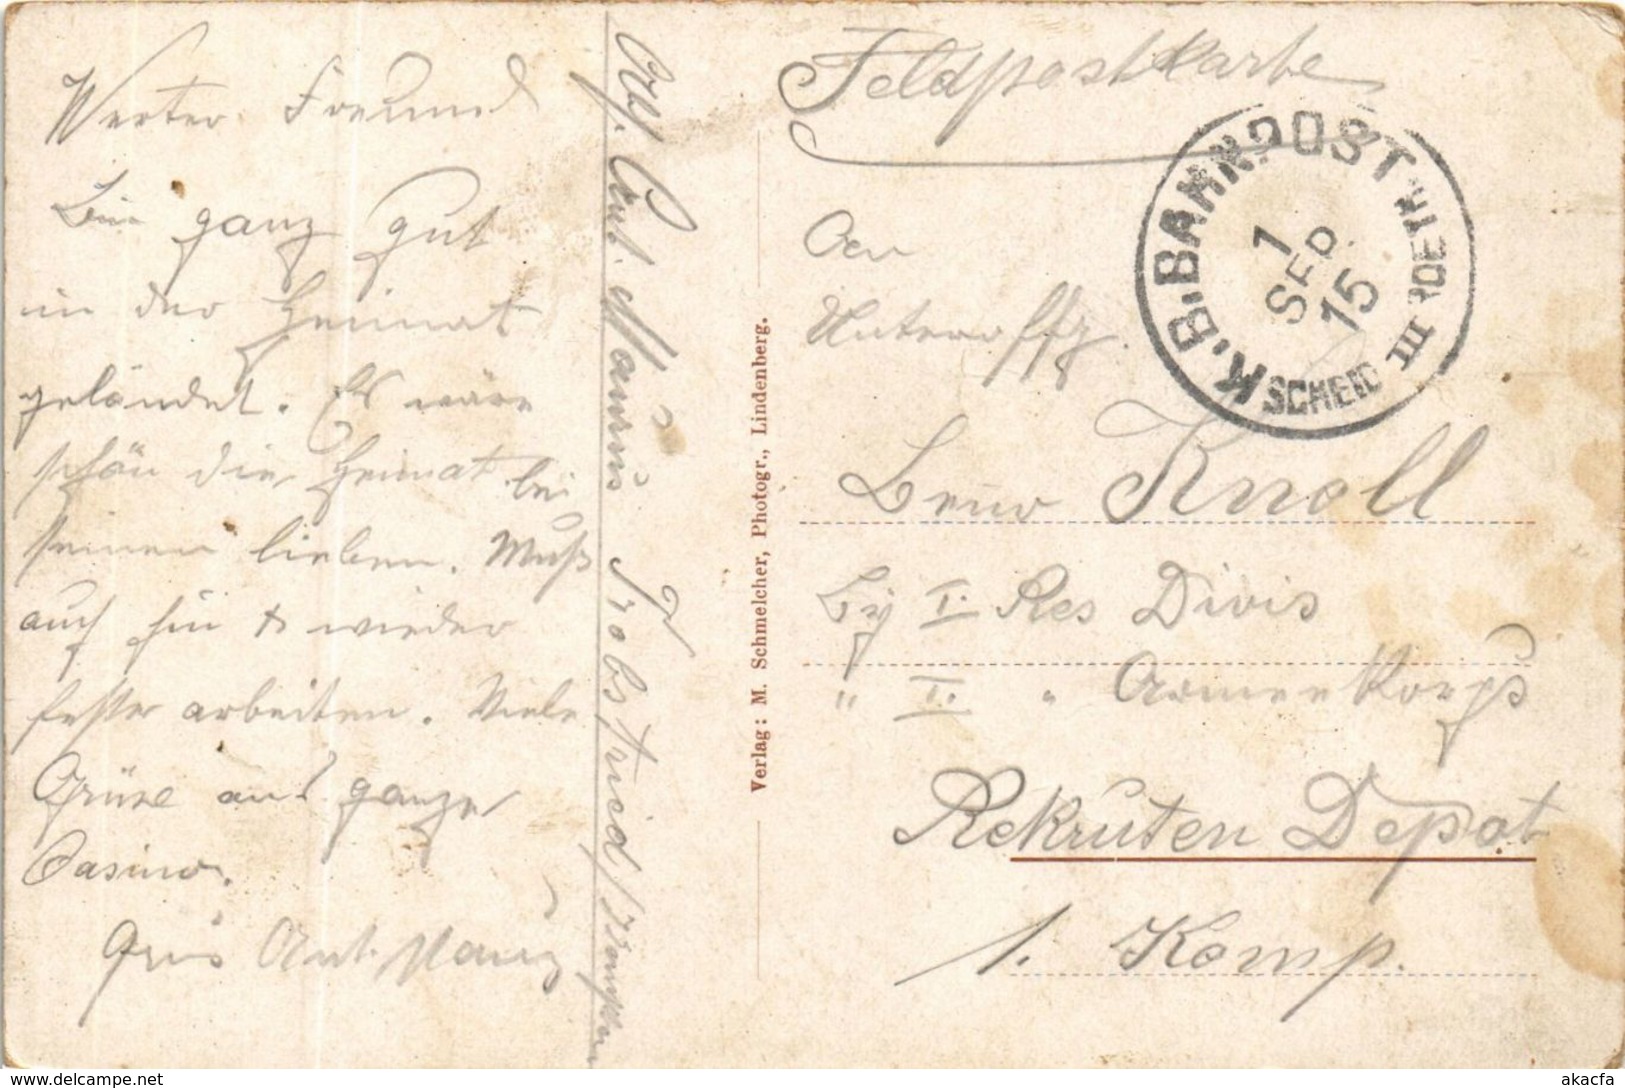 Werter Freund
Bin ganz gut
in der Heimat
geländet. Es wäre
schön die Heimat bei
seinen lieben. Muß
auch hin & wieder
fester arbeiten. Viele
Grüse auf ganze
Casino.
Grus Ant.
Abs. Ant.
Verlag: M. Schmelcher, Photogr., Lindenberg.
Feldpostkarte
K.B.BAHNPOST
1
SEP.
15
ROETH
SCHEID III
An
Unteroffz.
Knoll
I. Res Divis
" I. " Armee Korps
Rekruten Depot
1. Komp.
akpool.de/delcampe.net
akacfa